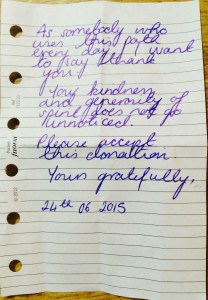 As somebody who
uses this path
every day, I want
to say thank
you.
Your kindness
and generosity of
spirit does not go
unnoticed.
Please accept
this donation.
Yours gratefully,
24th 06 2015